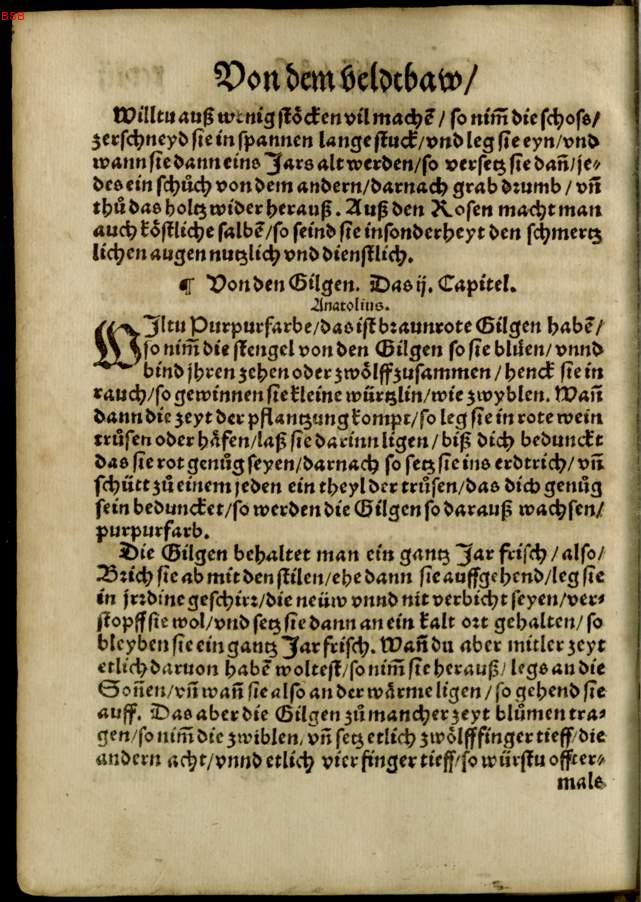 BSB
Von dem veldtbaw/
Willtu auß wenig stöcken vil machẽ / so nim̃ die schoss/
zerschneyd sie in spannen lange stuck/vnd leg sie eyn/vnd
wann sie dann eins Jars alt werden/so versetz sie dañ/je⸗
des ein schůch von dem andern/darnach grab drumb / vñ
thů das holtz wider herauß. Auß den Rosen macht man
auch köstliche salbẽ/so seind sie insonderheyt den schmertz
lichen augen nutzlich vnd dienstlich.
¶ Von den Gilgen. Das ij. Capitel.
Anatolius.
WIltu Purpurfarbe/das ist braunrote Gilgen habẽ/
so nim̃ die stengel von den Gilgen so sie blüen/vnnd
bind jhren zehen oder zwölff zusammen / henck sie in
rauch/so gewinnen sie kleine würtzlin/wie zwyblen. Wañ
dann die zeyt der pflantzung kompt/so leg sie in rote wein
trůsen oder häfen/laß sie darinn ligen / biß dich bedunckt
das sie rot genůg seyen/darnach so setz sie ins erdtrich/ vñ
schütt zů einem jeden ein theyl der trůsen/das dich genůg
sein beduncket/so werden die Gilgen so darauß wachsen/
purpurfarb.
Die Gilgen behaltet man ein gantz Jar frisch / also/
Brich sie ab mit den stilen/ehe dann sie auffgehend/leg sie
in jrrdine geschirr/die neüw vnnd nit verbicht seyen/ver⸗
stopff sie wol/vnd setz sie dann an ein kalt ort gehalten/ so
bleyben sie ein gantz Jar frisch. Wañ du aber mitler zeyt
etlich daruon habẽ woltest/so nim̃ sie herauß/ legs an die
Soñen/vñ wañ sie also an der wärme ligen / so gehend sie
auff. Das aber die Gilgen zů mancher zeyt blůmen tra⸗
gen/so nim̃ die zwiblen/ vñ setz etlich zwölff finger tieff/die
andern acht/vnnd etlich vier finger tieff/so würstu offter⸗
mals